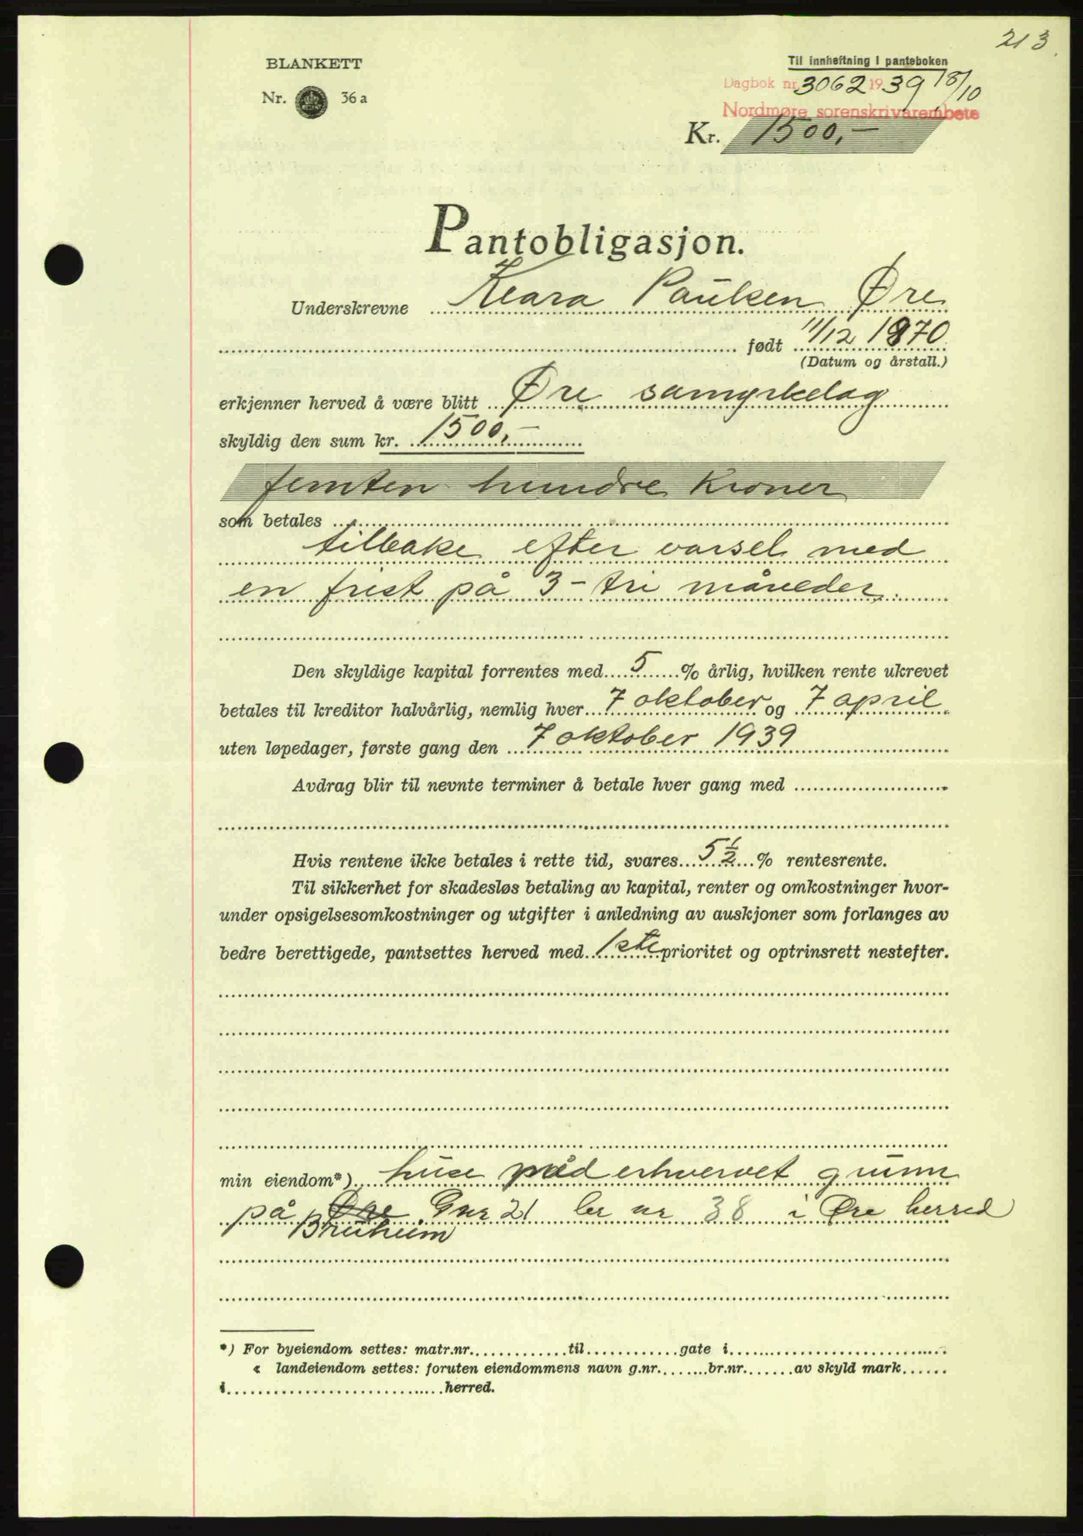 213
BLANKETT
Nr. 36 a
Til innheftning i panteboken
Dagbok nr. 3062 1939 18/10
Nordmøre sorenskrivarembete
Kr. 1500,-
Pantobligasjon.
Underskrevne Klara Paulsen Øre
født 11/12 1870
(Datum og årstall.)
erkjenner herved å være blitt Øre samyrkelag
skyldig den sum kr. 1500,-
femten hundre Kroner
som betales
tilbake efter varsel med
en frist på 3 - tri måneder.
Den skyldige kapital forrentes med 5 % årlig, hvilken rente ukrevet
betales til kreditor halvårlig, nemlig hver 7 oktober og 7 april
uten løpedager, første gang den 7 oktober 1939
Avdrag blir til nevnte terminer å betale hver gang med
Hvis rentene ikke betales i rette tid, svares 5 1/2 % rentesrente.
Til sikkerhet for skadesløs betaling av kapital, renter og omkostninger hvor-
under opsigelsesomkostninger og utgifter i anledning av auskjoner som forlanges av
bedre berettigede, pantsettes herved med 1ste prioritet og optrinsrett nestefter.
min eiendom*) huse med erhvervet grunn
på Øre Gnr 21 br nr 38 i Øre herred
Bruheim
*) For byeiendom settes: matr.nr. til gate i
« landeiendom settes: foruten eiendommens navn g.nr. br.nr. av skyld mark
i herred.